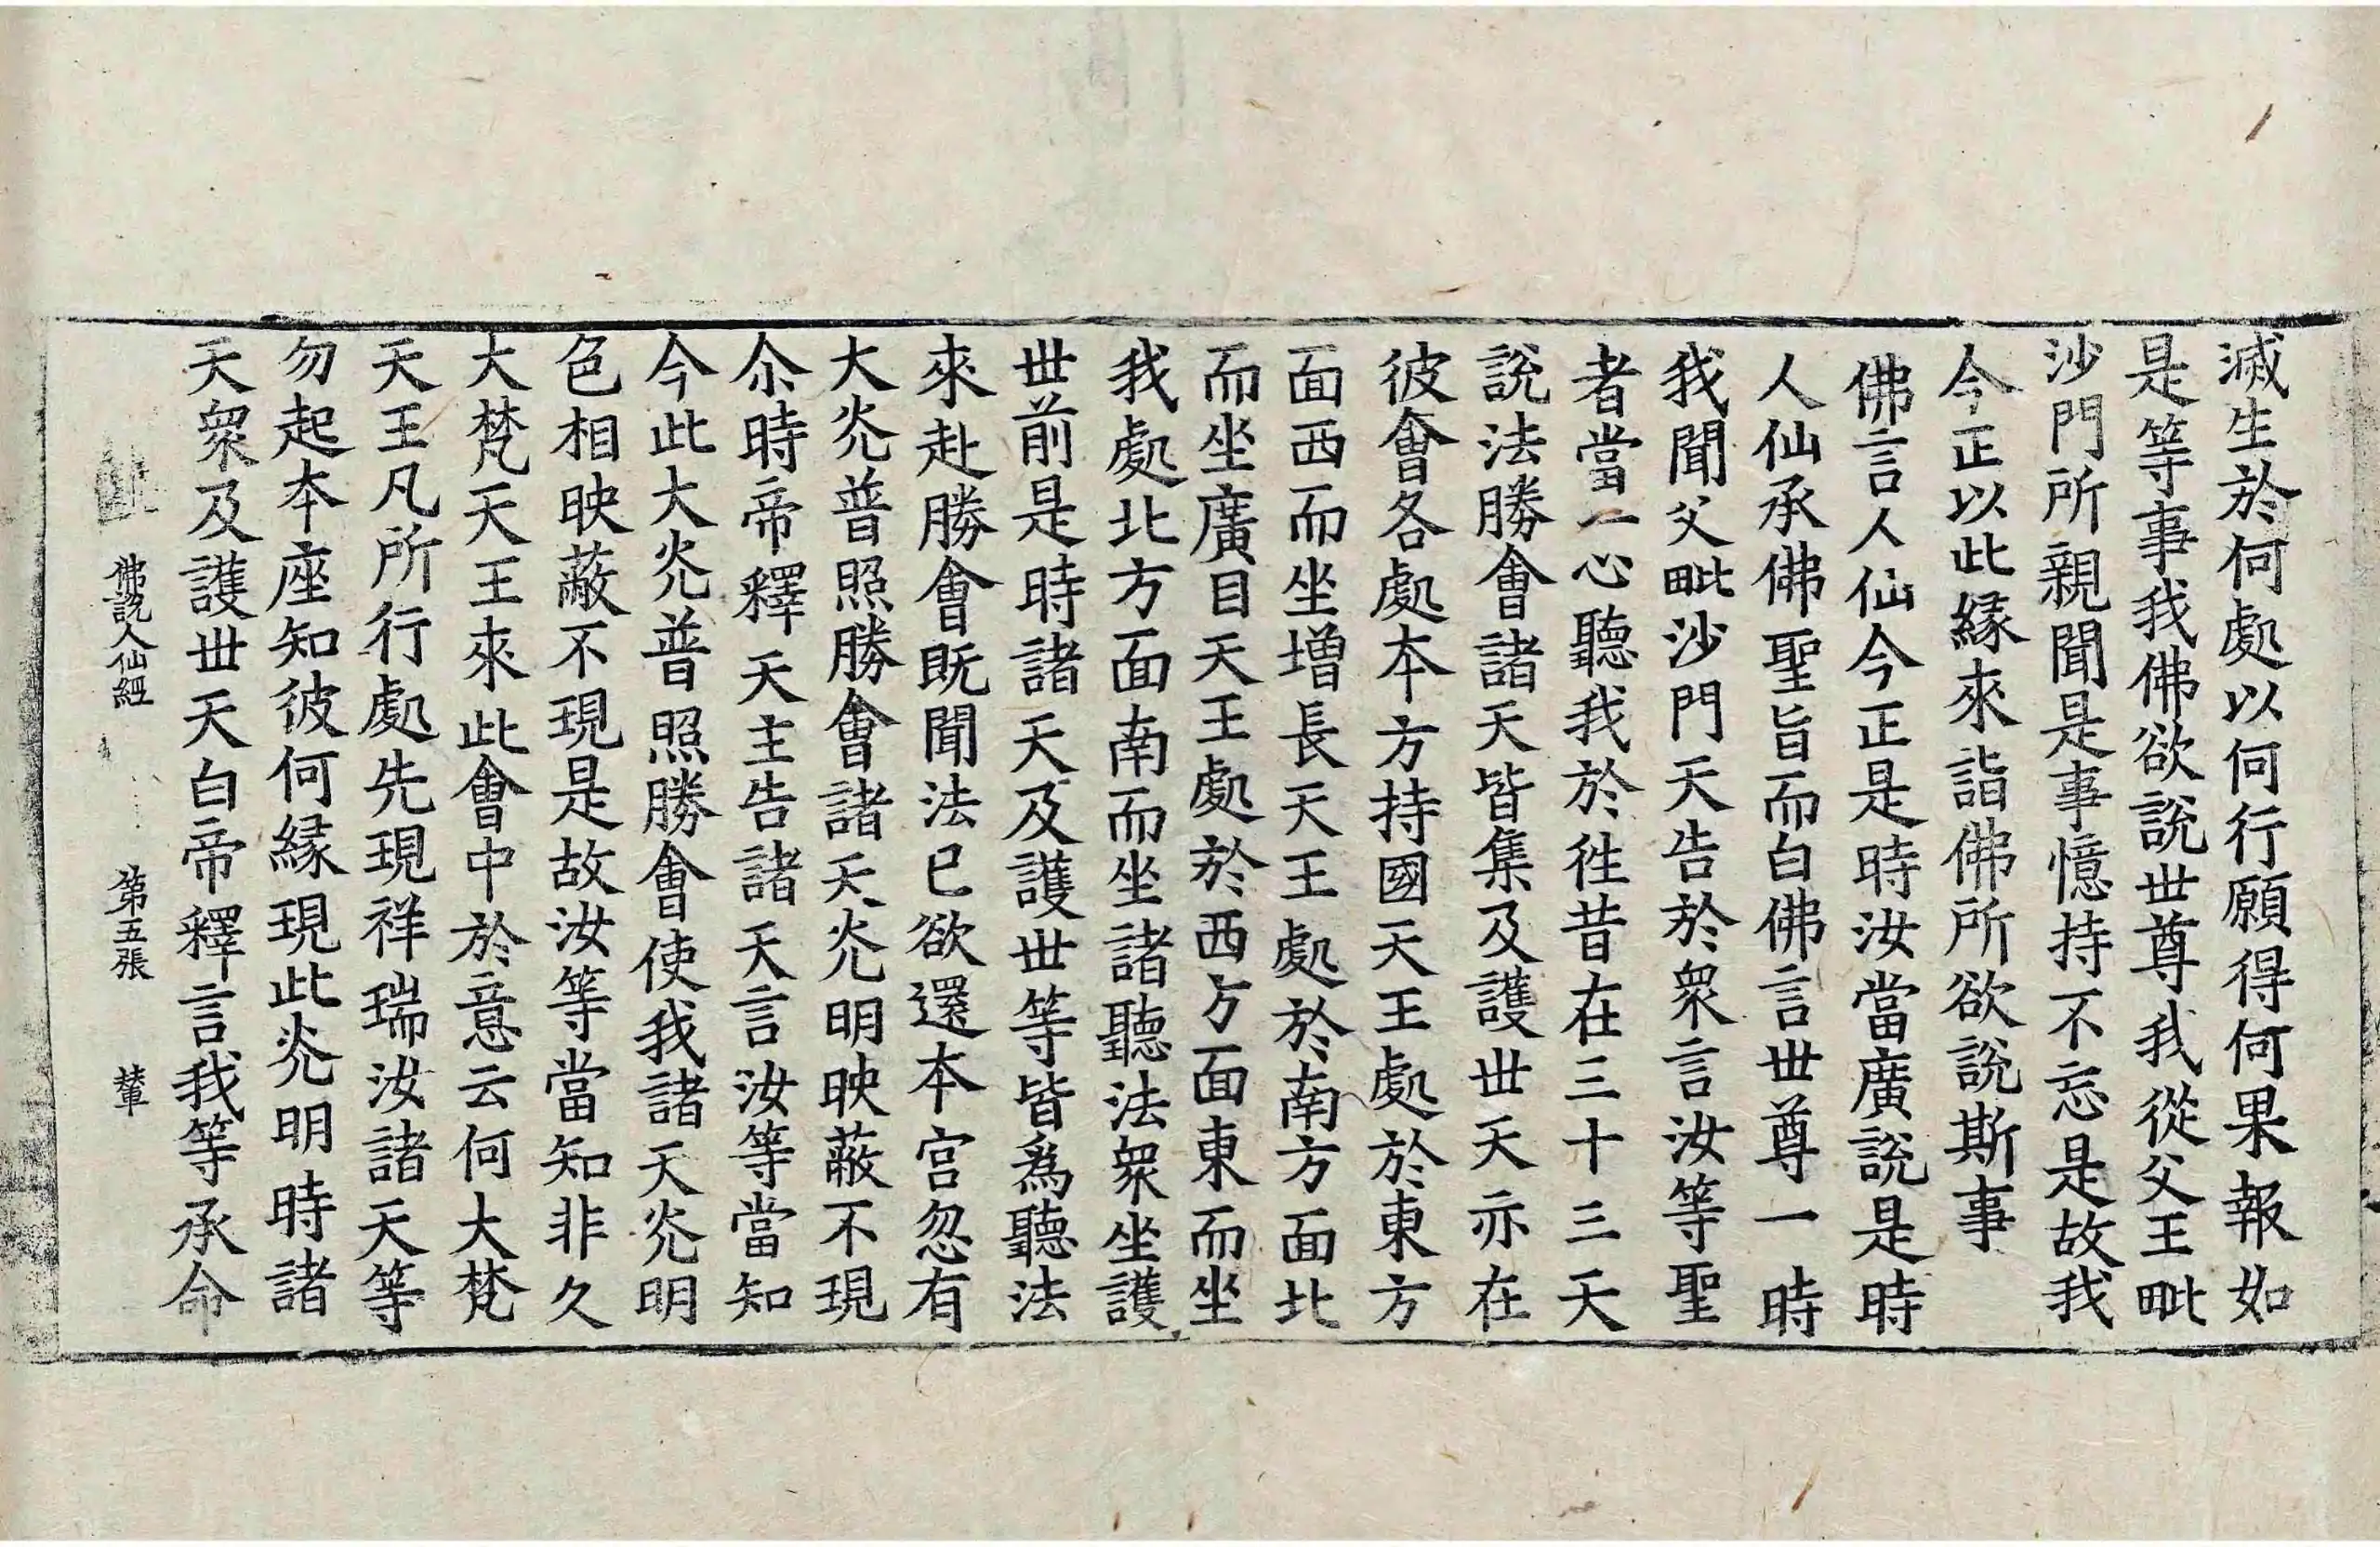 滅生於何處以何行願得何果報如
是等事我佛欲說世尊我從父王毗
沙門所親聞是事憶持不忘是故我
今正以此緣來詣佛所欲說斯事
佛言人仙今正是時汝當廣說是時
人仙承佛聖旨而白佛言世尊一時
我聞父毗沙門天告於衆言汝等聖
者當一心聽我於往昔在三十三天
說法勝會諸天皆集及護世天亦在
彼會各處本方持國天王處於東方
面西而坐增長天王處於南方面北
而坐廣目天王處於西方面東而坐
我處北方面南而坐諸聽法衆坐護
世前是時諸天及護世等皆爲聽法
來赴勝會旣聞法已欲還本宮忽有
大光普照勝會諸天光明映蔽不現
尒時帝釋天主告諸天言汝等當知
今此大光普照勝會使我諸天光明
色相映蔽不現是故汝等當知非久
大梵天王來此會中於意云何大梵
天王凡所行處先現祥瑞汝諸天等
勿起本座知彼何緣現此光明時諸
天衆及護世天白帝釋言我等承命
佛說人仙經 第五張 輦